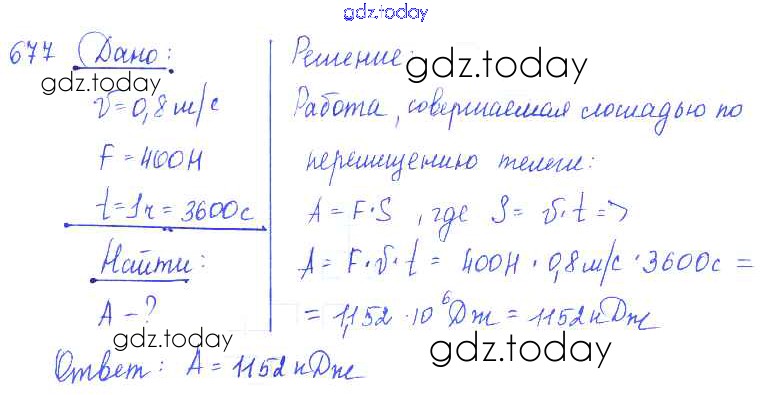 gdz.today
677 Дано:
gdz.today
v = 0,8 м/с
F = 400Н
t = 1ч = 3600с
Найти:
A - ?
gdz.today
Решение:
gdz.today
Работа, совершаемая лошадью по
перемещению телеги:
A = F·S , где S = v·t =>
A = F·v·t = 400Н · 0,8 м/с · 3600с =
= 1,152 · 10⁶ Дж = 1152 кДж
gdz.today
Ответ: A = 1152 кДж